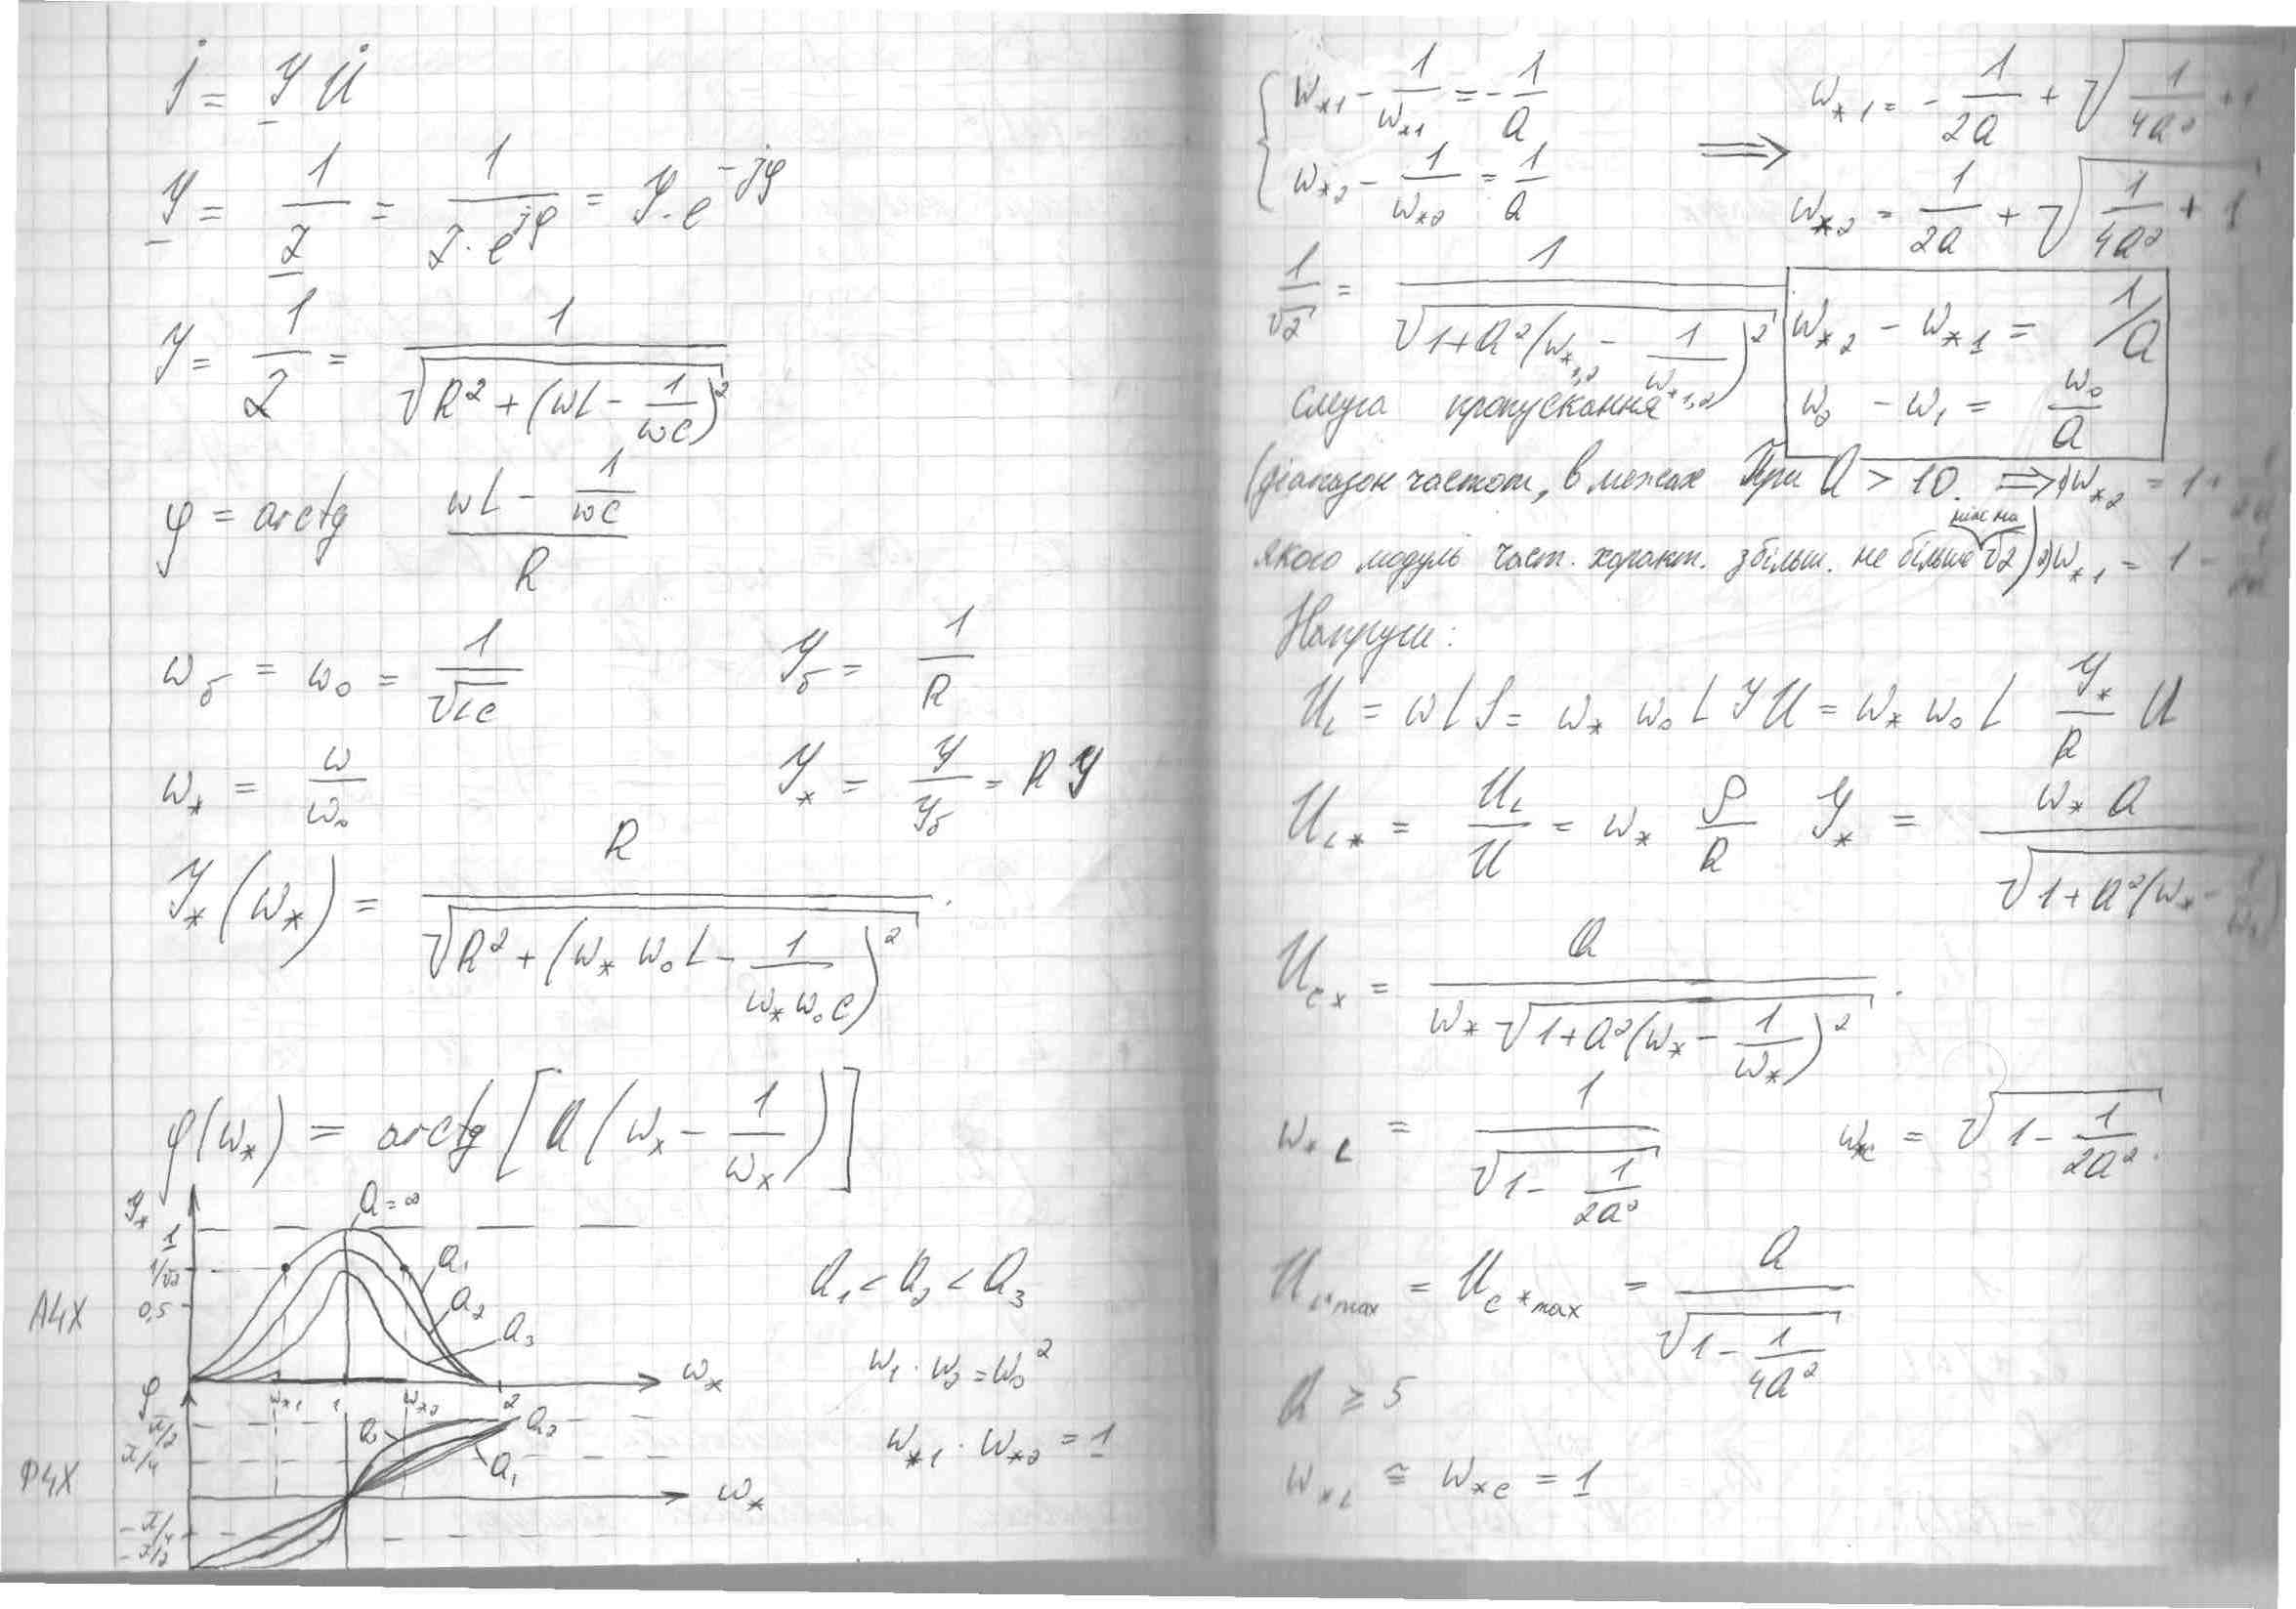 İ = Y U̇
Y = 1/Z = 1/(Z·e^jφ) = Y·e^-jφ
Y = 1/Z = 1/√(R² + (ωL - 1/ωC)²)
φ = arctg (ωL - 1/ωC)/R
ω_б = ω₀ = 1/√LC    Y_б = 1/R
ω_* = ω/ω₀    Y_* = Y/Y_б = R Y
Y_*(ω_*) = R/√(R² + (ω_* ω₀L - 1/(ω_* ω₀C))²).
φ(ω_*) = arctg [Q(ω_* - 1/ω_*)]
Y_*
Q=∞
1
1/√2
0,5
Q₁
Q₂
Q₃
АЧХ
Q₁ < Q₂ < Q₃
ω₁·ω₂ = ω₀²
ω_*
ω_*1 1 ω_*2 2
φ
π/2
π/4
Q₂
Q₁
ω_*1 · ω_*2 = 1
ФЧХ
ω_*
-π/4
-π/2
{ ω_*1 - 1/ω_*1 = -1/Q
ω_*2 - 1/ω_*2 = 1/Q
⟹ ω_*1 = - 1/2Q + √(1/4Q² + 1)
ω_*2 = 1/2Q + √(1/4Q² + 1)
1/√2 = 1/√(1+Q²(ω_*1,2 - 1/ω_*1,2)²)
ω_*2 - ω_*1 = 1/Q
ω₂ - ω₁ = ω₀/Q
смуга пропускання
(діапазон частот, в межах При Q > 10. ⟹ 1) ω_*2 = 1 +
ніж на
якого модуль част. характ. збільш. не більше √2) 2) ω_*1 = 1 -
Напруги:
U_L = ωL I = ω_* ω₀ L Y U = ω_* ω₀ L Y_*/R U
U_L* = U_L/U = ω_* ρ/R Y_* = ω_* Q/√(1+Q²(ω_* - 1/ω_*)
U_C* = Q/(ω_* √(1+Q²(ω_* - 1/ω_*)²)).
ω_*L = 1/√(1 - 1/2Q²)    ω_*C = √(1 - 1/2Q²).
U_L*max = U_C*max = Q/√(1 - 1/4Q²)
Q ≥ 5
ω_*L ≅ ω_*C = 1